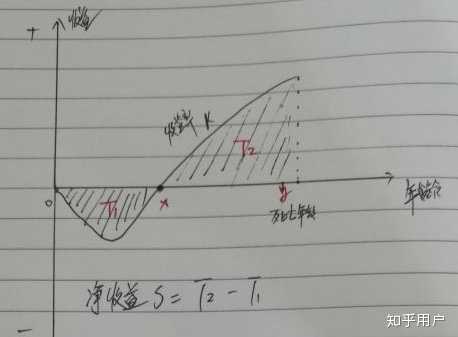 +
收益
收益率 K
T2
T1
0
x
y
年龄
死亡年龄
净收益 S = T2 - T1
-
知乎用户